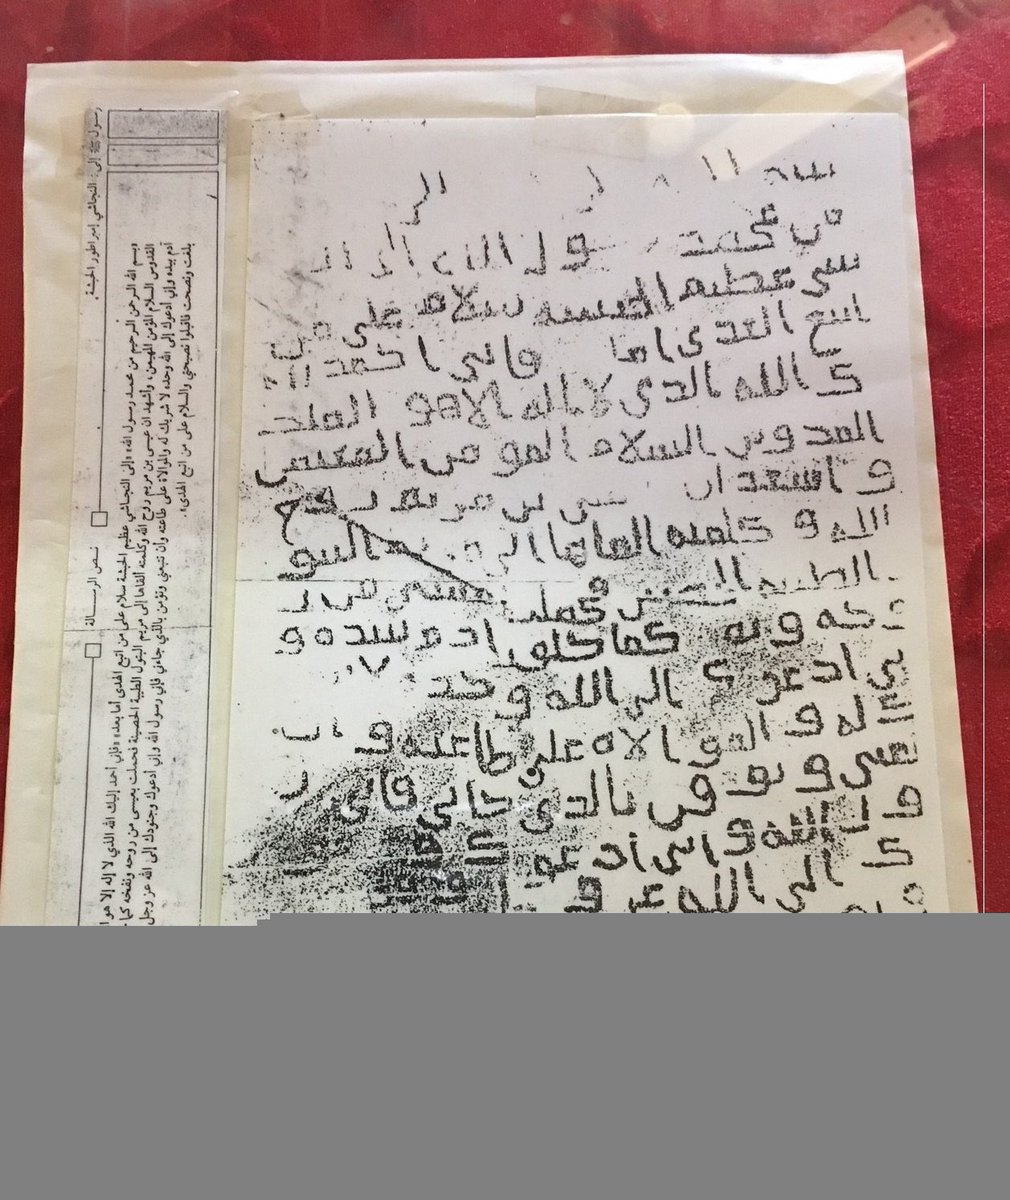 رسول ﷺ إلى: النجاشي إمبراطور الحبشة.
نص الرسالة
وبسم الله الرحمن الرحيم من محمد رسول الله، إلى النجاشي عظيم الحبشة سلام على من اتبع الهدى أما بعد، فإني أحمد إليك الله الذي لا إله إلا هو
القدوس السلام المؤمن المهيمن، وأشهد ان عيسى بن مريم روح الله وكلمته ألقاها الى مريم البتول الطيبة الحصينة فحملت بعيسى من روحه ونفخه كما
آدم بيده وإني أدعوك إلى الله وحده لا شريك له والموالاة على طاعته وأن تتبعني وتؤمن بالذي جاءني فإني رسول الله وإني أدعوك وجنودك إلى الله عز وجل
بلغت ونصحت فاقبلوا نصيحتي والسلام على من اتبع الهدى.
من محمد رسول الله الى
شي عظيم الحبشة سلام على من
اتبع الهدى اما فاني احمد
ك الله الذي لا اله الا هو الملك
القدوس السلام المومن المهيمن
و اشهد ان مريم روح
الله و كلمته القاها الى البتو
الطيبة فحملت من ر
كما خلق ادم بيده و
ني ادعوك الى الله وحد
له و الموالاه على طاعته و ان
تتبعني و تومن بالذي جاني فاني ر
الله و اني ادعو
ك الى الله عز و